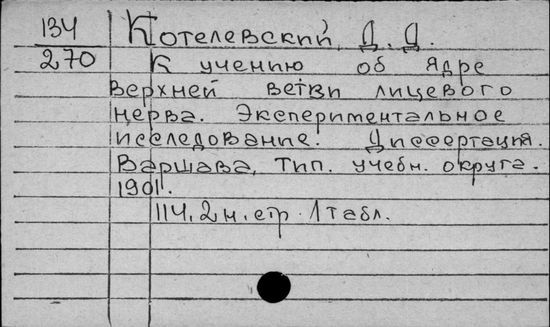 134 Котелевский, Д. Д.
270 К учению об ядре
верхней ветви лицевого
нерва. Экспериментальное
исследование. Диссертация.
Варшава, Тип. учебн. округа.
1901.
114, 2 н. стр. 1 табл.